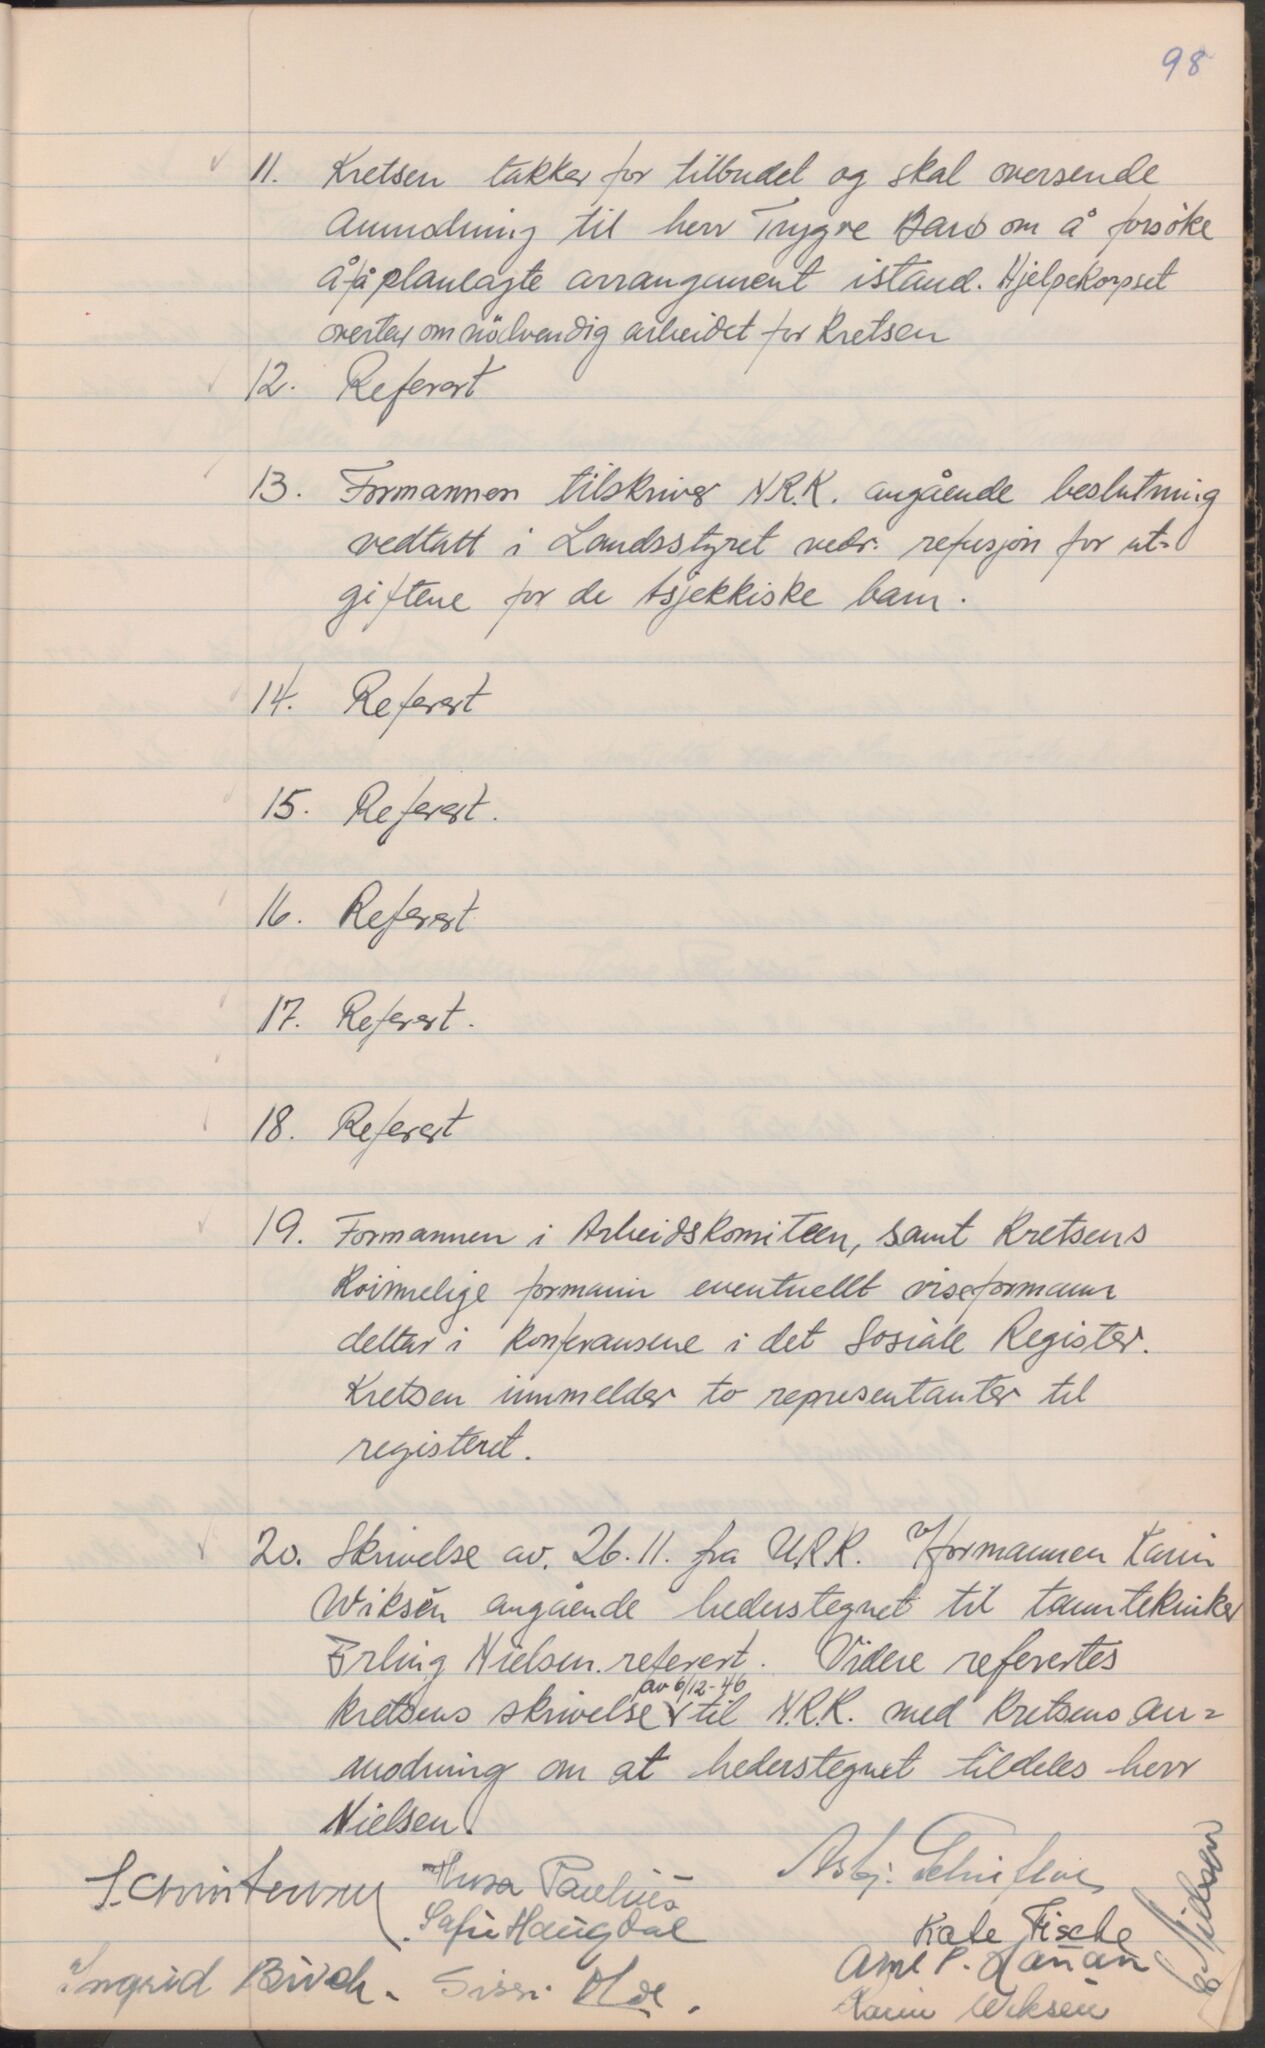 98
11. Kretsen takker for tilbudet og skal oversende
Anmodning til herr Trygve Barø om å forsöke
å få planlagte arrangement istand. Hjelpekorpset
overtar om nödvendig arbeidet for Kretsen
12. Referert
13. Formannen tilskriver N.R.K. angående beslutning
vedtatt i Landsstyret vedr. refusjon for ut=
giftene for de tsjekkiske barn.
14. Referert
15. Referert.
16. Referert
17. Referert.
18. Referert
19. Formannen i Arbeidskomiteen, samt Kretsens
Kvinnelige formann eventuellt viseformann
deltar i konferansene i det Sosiale Register.
Kretsen innmelder to representanter til
registeret.
20. Skrivelse av. 26.11. fra U.R.K. v/formannen Karin
Wiksén angående hederstegnet til tanntekniker
Erling Nielsen referert. Videre refertes
av 6/12-46
kretsens skrivelse til N.R.K. med Kretsens an=
modning om at hederstegnet tildeles herr
Nielsen.
Paulius
Haugdal
Kate Fische
Ingrid Birch. Sissi Moe.
Karin Wiksén
E. Nielsen